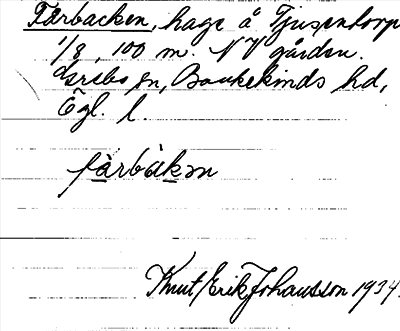 Fårbacken, hage å Tjusentorp
1/8, 100 m. NV gården.
Grebo sn, Bankekinds hd,
Ögl. l.
fårbakən
Knut Erik Johansson 1934.